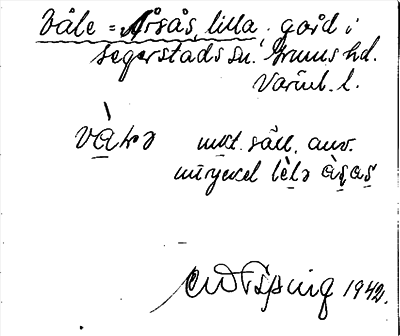 Våle = Årsås, lilla, gård i
Segerstads sn. Grums hd.
Värml. l.
vàlə mkt. säll. anv.
mycket lèlə àsas
1942.